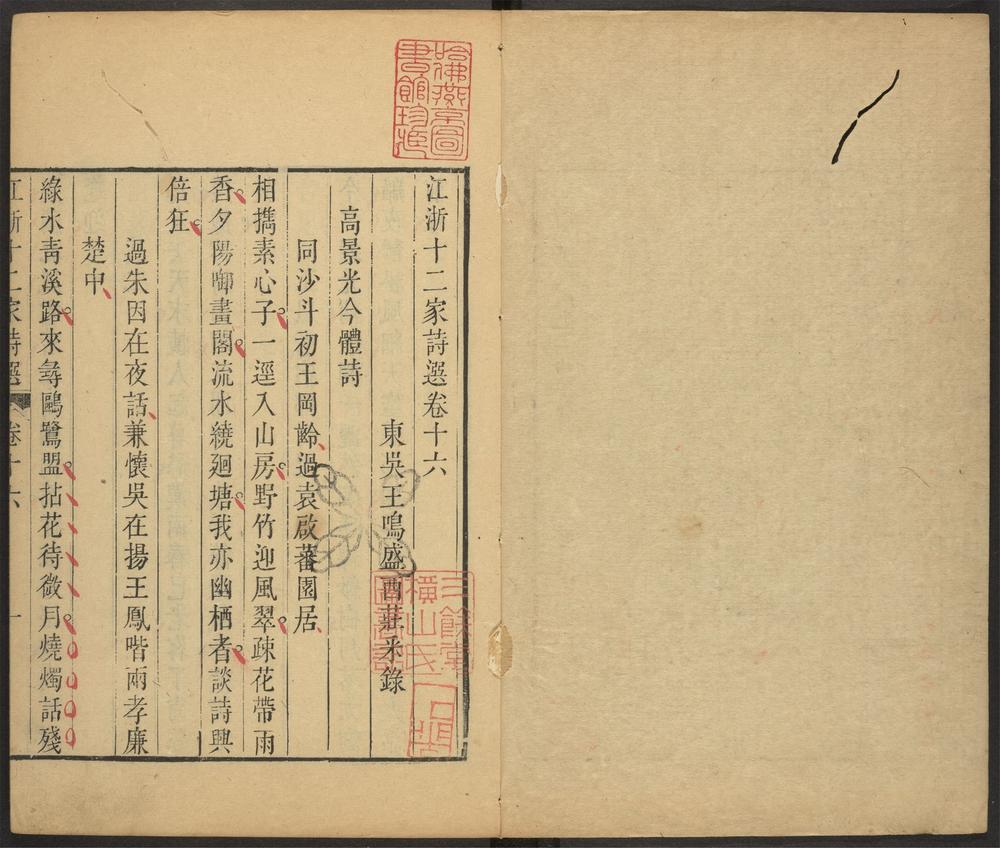 江浙十二家詩選卷十六
東吳王鳴盛西莊釆錄
高景光今體詩
同沙斗初王岡齡過袁啟蕃園居
相攜素心子一逕入山房野竹迎風翠疎花帶雨
香夕陽啣畫閣流水繞廻塘我亦幽栖者談詩興
倍狂
過朱因在夜話兼懷吳在揚王鳳喈兩孝廉
楚中
綠水靑溪路來尋鷗鷺盟拈花待微月燒燭話殘
江浙十二家詩選 卷十六 一
哈佛燕京圖
書館珍藏
三餘堂
橫山氏